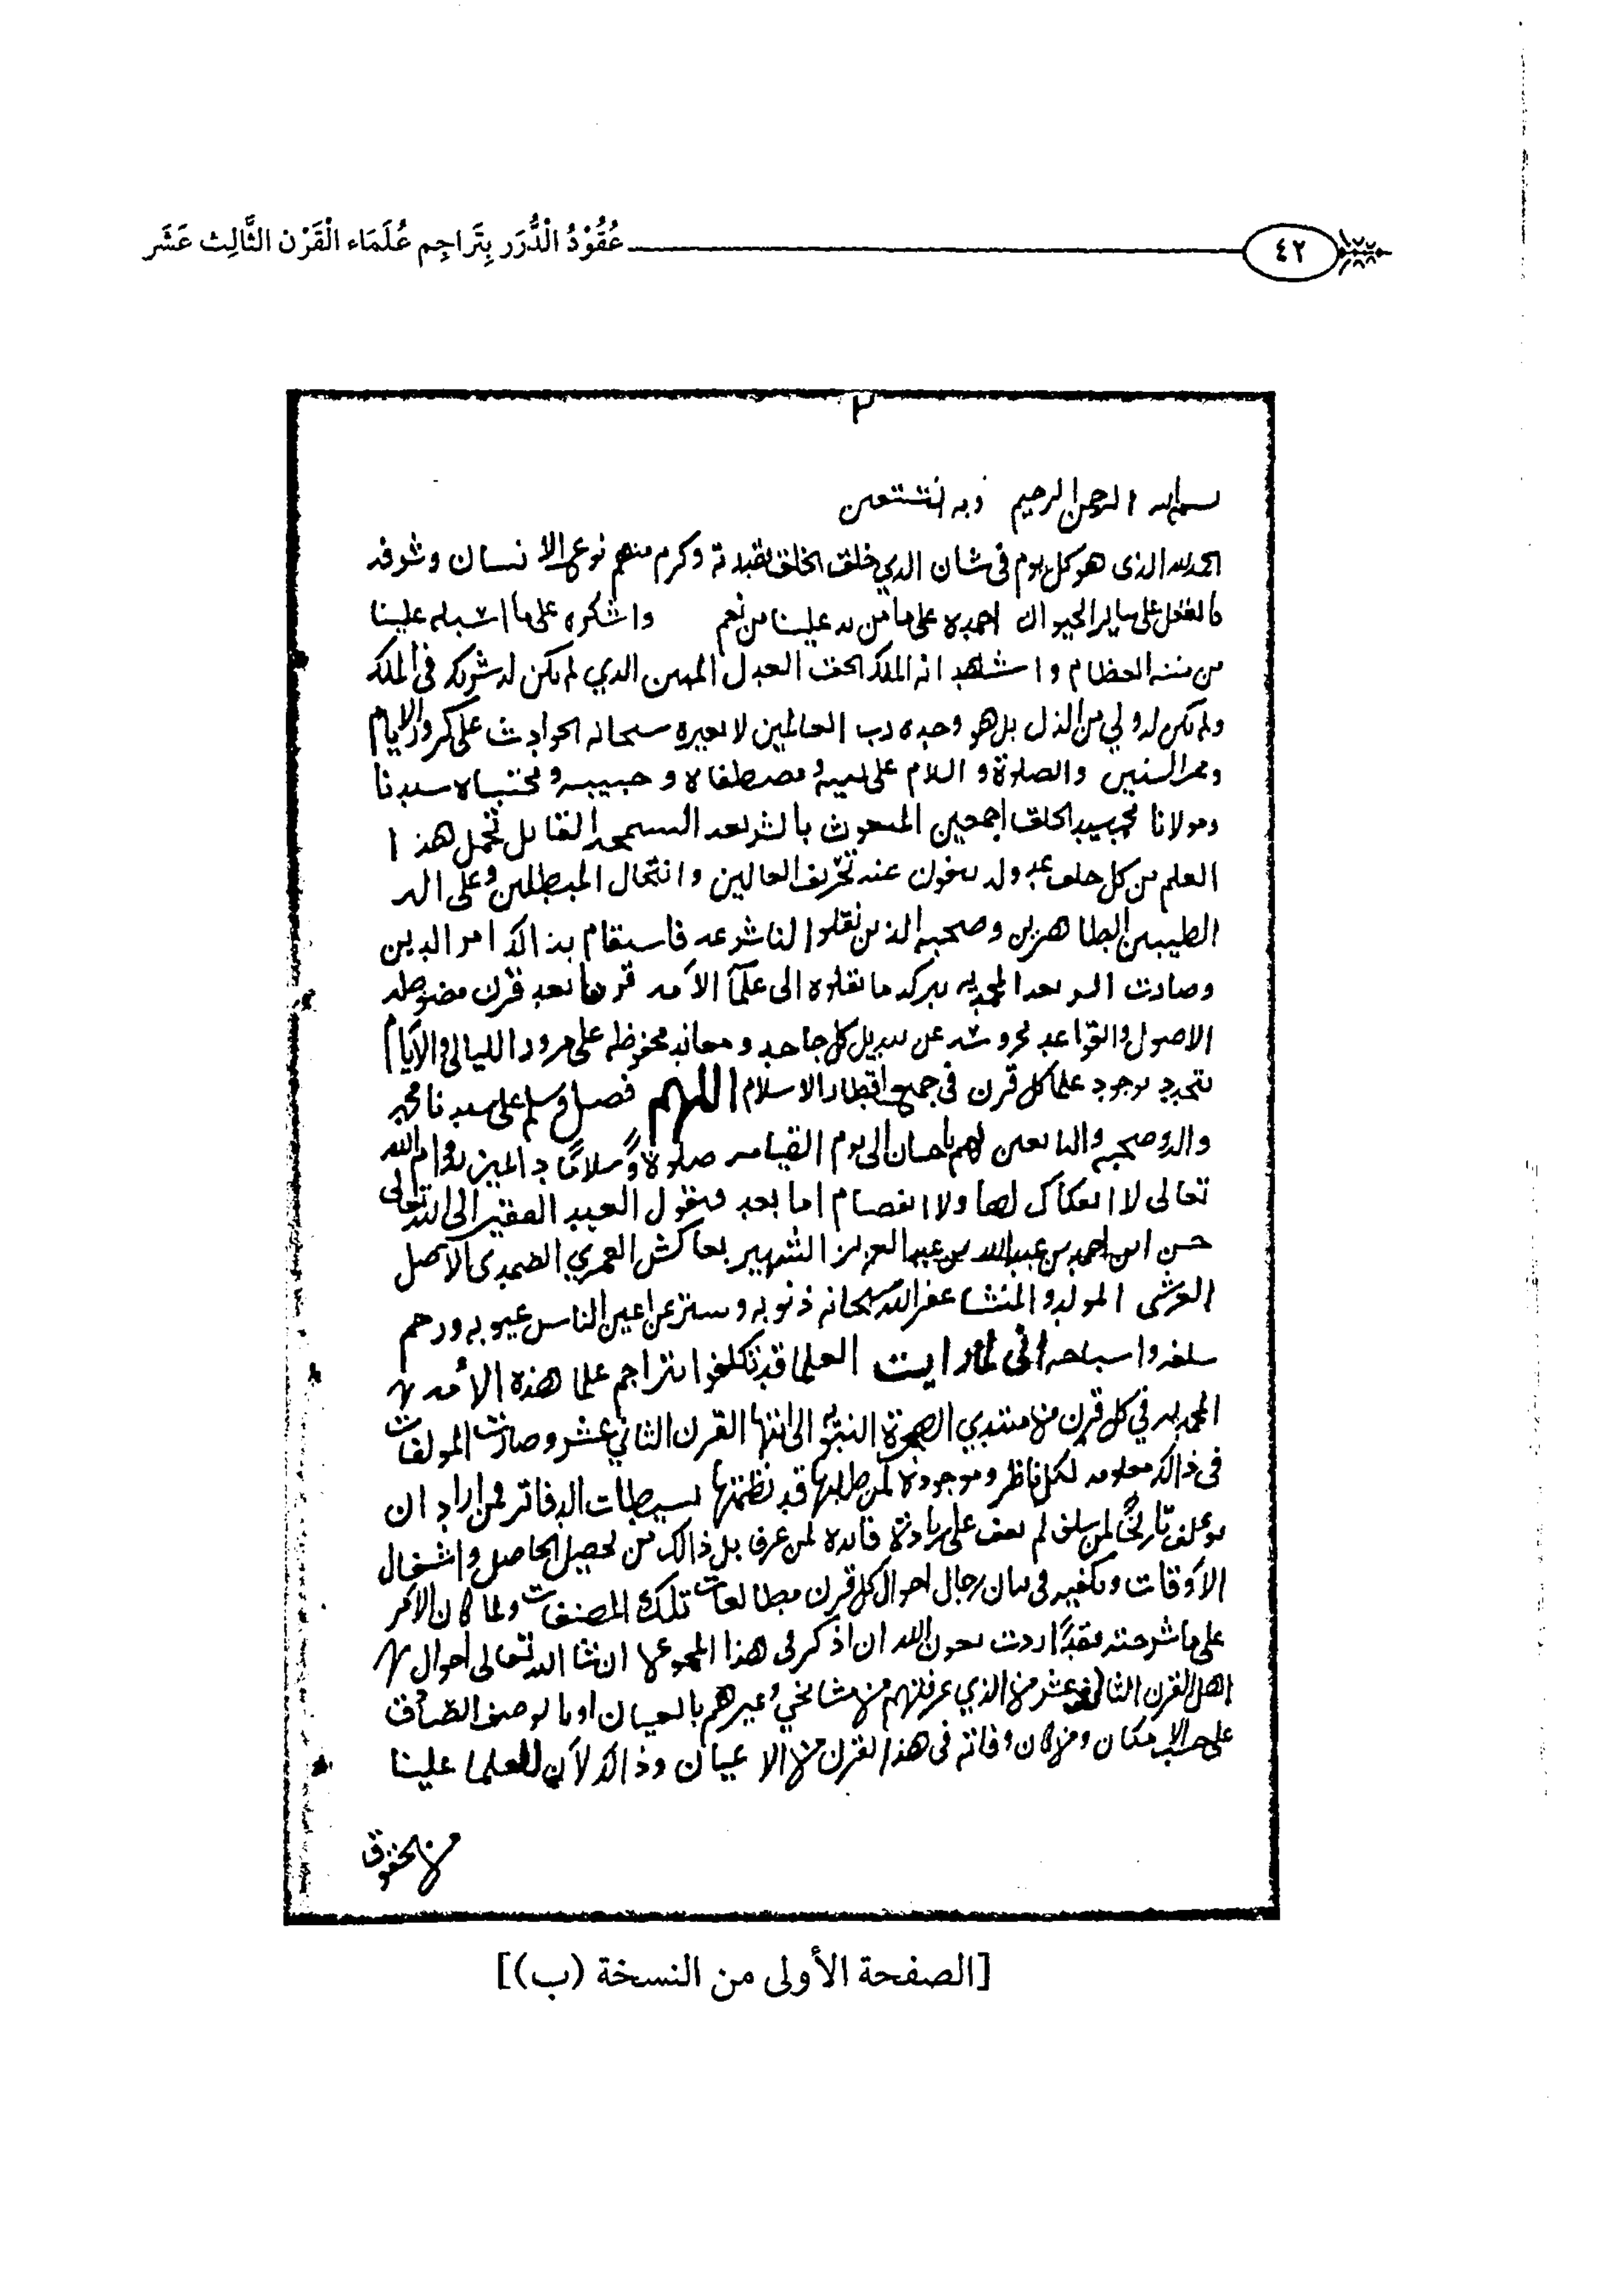 ٤٢
عُقُوْدُ الْدُّرَر بِتَرَاجِم عُلَمَاء الْقَرْن الثَّالِث عَشَر
٢
بسم الله الرحمن الرحيم وبه نستعين
الحمد لله الذى هو كل يوم فى شان الذي خلق الخلق بقدرته وكرم منهم نوع الانسان وشرفه
بالفضل على ساير الحيوان احمده على ما من به علينا من نعم واشكره على ما اسبله علينا
من مننه العظام واشهد انه الملك الحق العدل المهين الذي لم يكن له شريك فى الملك
ولم يكن له ولي من الذل بل هو وحده رب العالمين لا يغيره سبحانه الحوادث على كرور الايام
وممر السنين والصلوة والسلام على نبيه ومصطفاه وحبيبه ومجتباه سيدنا
ومولانا محمد سيد الخلق اجمعين المبعوث بالشريعه السمحه القائل يحمل هذا
العلم من كل خلف عدوله ينفون عنه تحريف الغالين وانتحال المبطلين وعلى اله
الطيبين الطاهرين وصحبه الذين نقلوا لنا شرعه فاستقام بذالك امر الدين
وصارت الشريعه المحمديه ببركه ما نقلوه الى علمآ الأمه قرنا بعد قرن مضبوطه
الاصول والقواعد محروسه عن تبديل كل جاحد ومعاند محفوظه على مرور الليالي والأيام
بتجدد بوجود علما كل قرن فى جميع اقطار الاسلام اللهم فصل وسلم على سيدنا محمد
واله وصحبه والتابعين لهم باحسان الى يوم القيامه صلوة وسلامًا دائمين بدوام الله
تعالى لا انفكاك لها ولا انفصام اما بعد فيقول العبد الفقير الى الله تعالى
حسن ابن احمد بن عبد الله بن عبد العزيز الشهير بعاكش العمري الضمدى الأصل
العرشى المولد والمنشا غفر الله سبحانه ذنوبه وستر عن اعين الناس عيوبه ورحم
سلفه واسباحه انى لما رايت العلما قد تكلفوا بتراجم علما هذه الأمه
المحمديه في كل قرن من مبتدي الهجرة النبويه الى انتها القرن الثاني عشر وصارت المولفات
فى ذالك معلومه لكل ناظر وموجودة لمن طلبها قد نظمتها بسيطات الدفاتر فمن اراد ان
يولف تاريخًا لمن سلف لم يقف على زيادة فائده لمن عرف بل ذالك من تحصيل الحاصل واشغال
الأوقات ويكفيه فى بيان رجال احوال كل قرن مطالعات تلك المصنفات ولما كان الأمر
على ما شرحته مقيدًا اردت بعون الله ان اذكر فى هذا المجموع ان شا الله تعالى احوال
اهل القرن الثالث عشر من الذي عرفتهم من مشايخي وغيرهم بالعيان او بالوصف الصادق
على حسب الامكان ومن كان وفاته فى هذا القرن من الاعيان وذالك لأن للعلما علينا
من الحقوق
[الصفحة الأولى من النسخة (ب)]